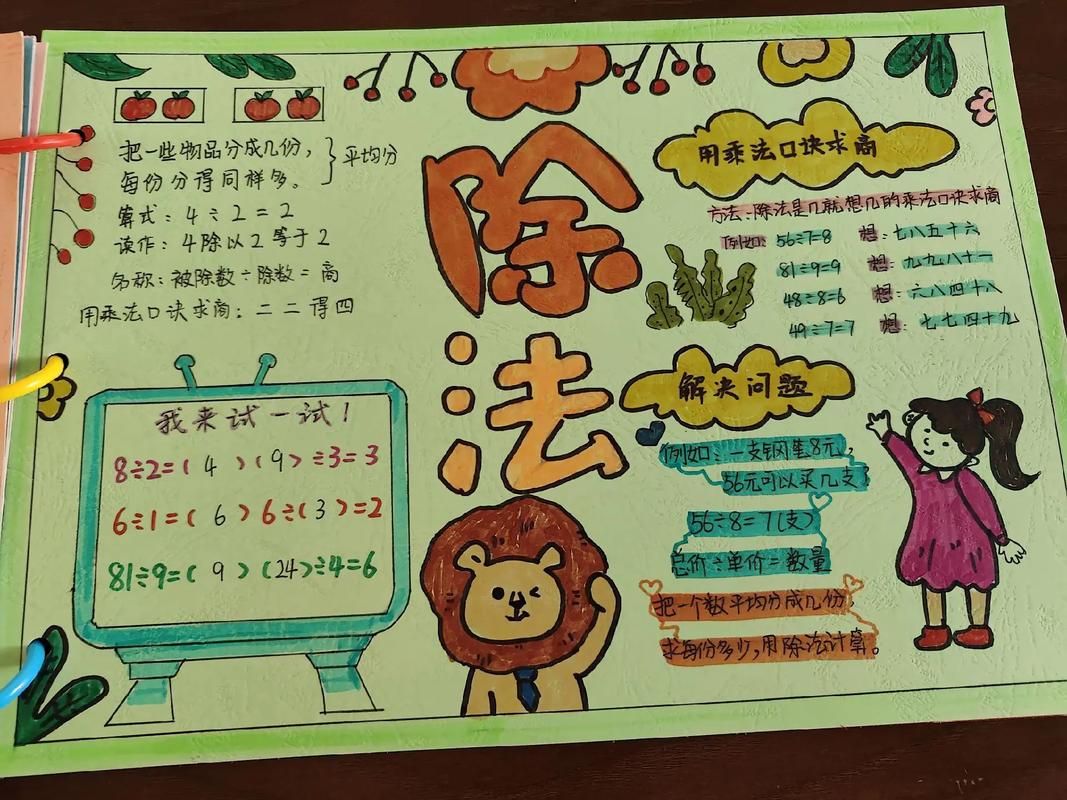 除法
把一些物品分成几份,
每份分得同样多。
平均分
算式:4÷2=2
读作:4除以2等于2
名称:被除数÷除数=商
用乘法口诀求商:二二得四
我来试一试!
8÷2=( 4 ) ( 9 )÷3=3
6÷1=( 6 ) 6÷( 3 )=2
81÷9=( 9 ) (24)÷4=6
用乘法口诀求商
方法:除法是几就想几的乘法口诀求商
例如:56÷7=8 想:七八五十六
81÷9=9 想:九九八十一
48÷8=6 想:六八四十八
49÷7=7 想:七七四十九
解决问题
例如:一支钢笔8元,
56元可以买几支
56÷8=7(支)
总价÷单价=数量
把一个数平均分成几份,
求每份多少,用除法计算。